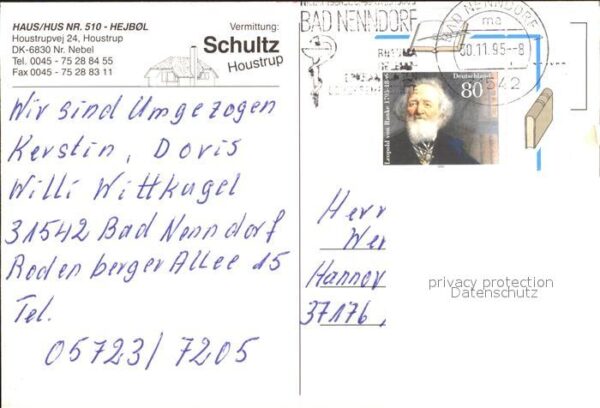 HAUS/HUS NR. 510 - HEJBØL
Houstrupvej 24, Houstrup
DK-6830 Nr. Nebel
Tel. 0045 - 75 28 84 55
Fax 0045 - 75 28 83 11
Vermittung:
Schultz
Houstrup
Wir sind Umgezogen
Kerstin, Doris
Willi Wittkugel
31542 Bad Nenndorf
Rodenberger Allee 15
Tel.
05723/7205
BAD NENNDORF
BAD NENNDORF
me
30.11.95-8
31542
Deutschland
80
Leopold von Ranke 1795-1886
Herr
Wer
Hannov
37176,
privacy protection
Datenschutz